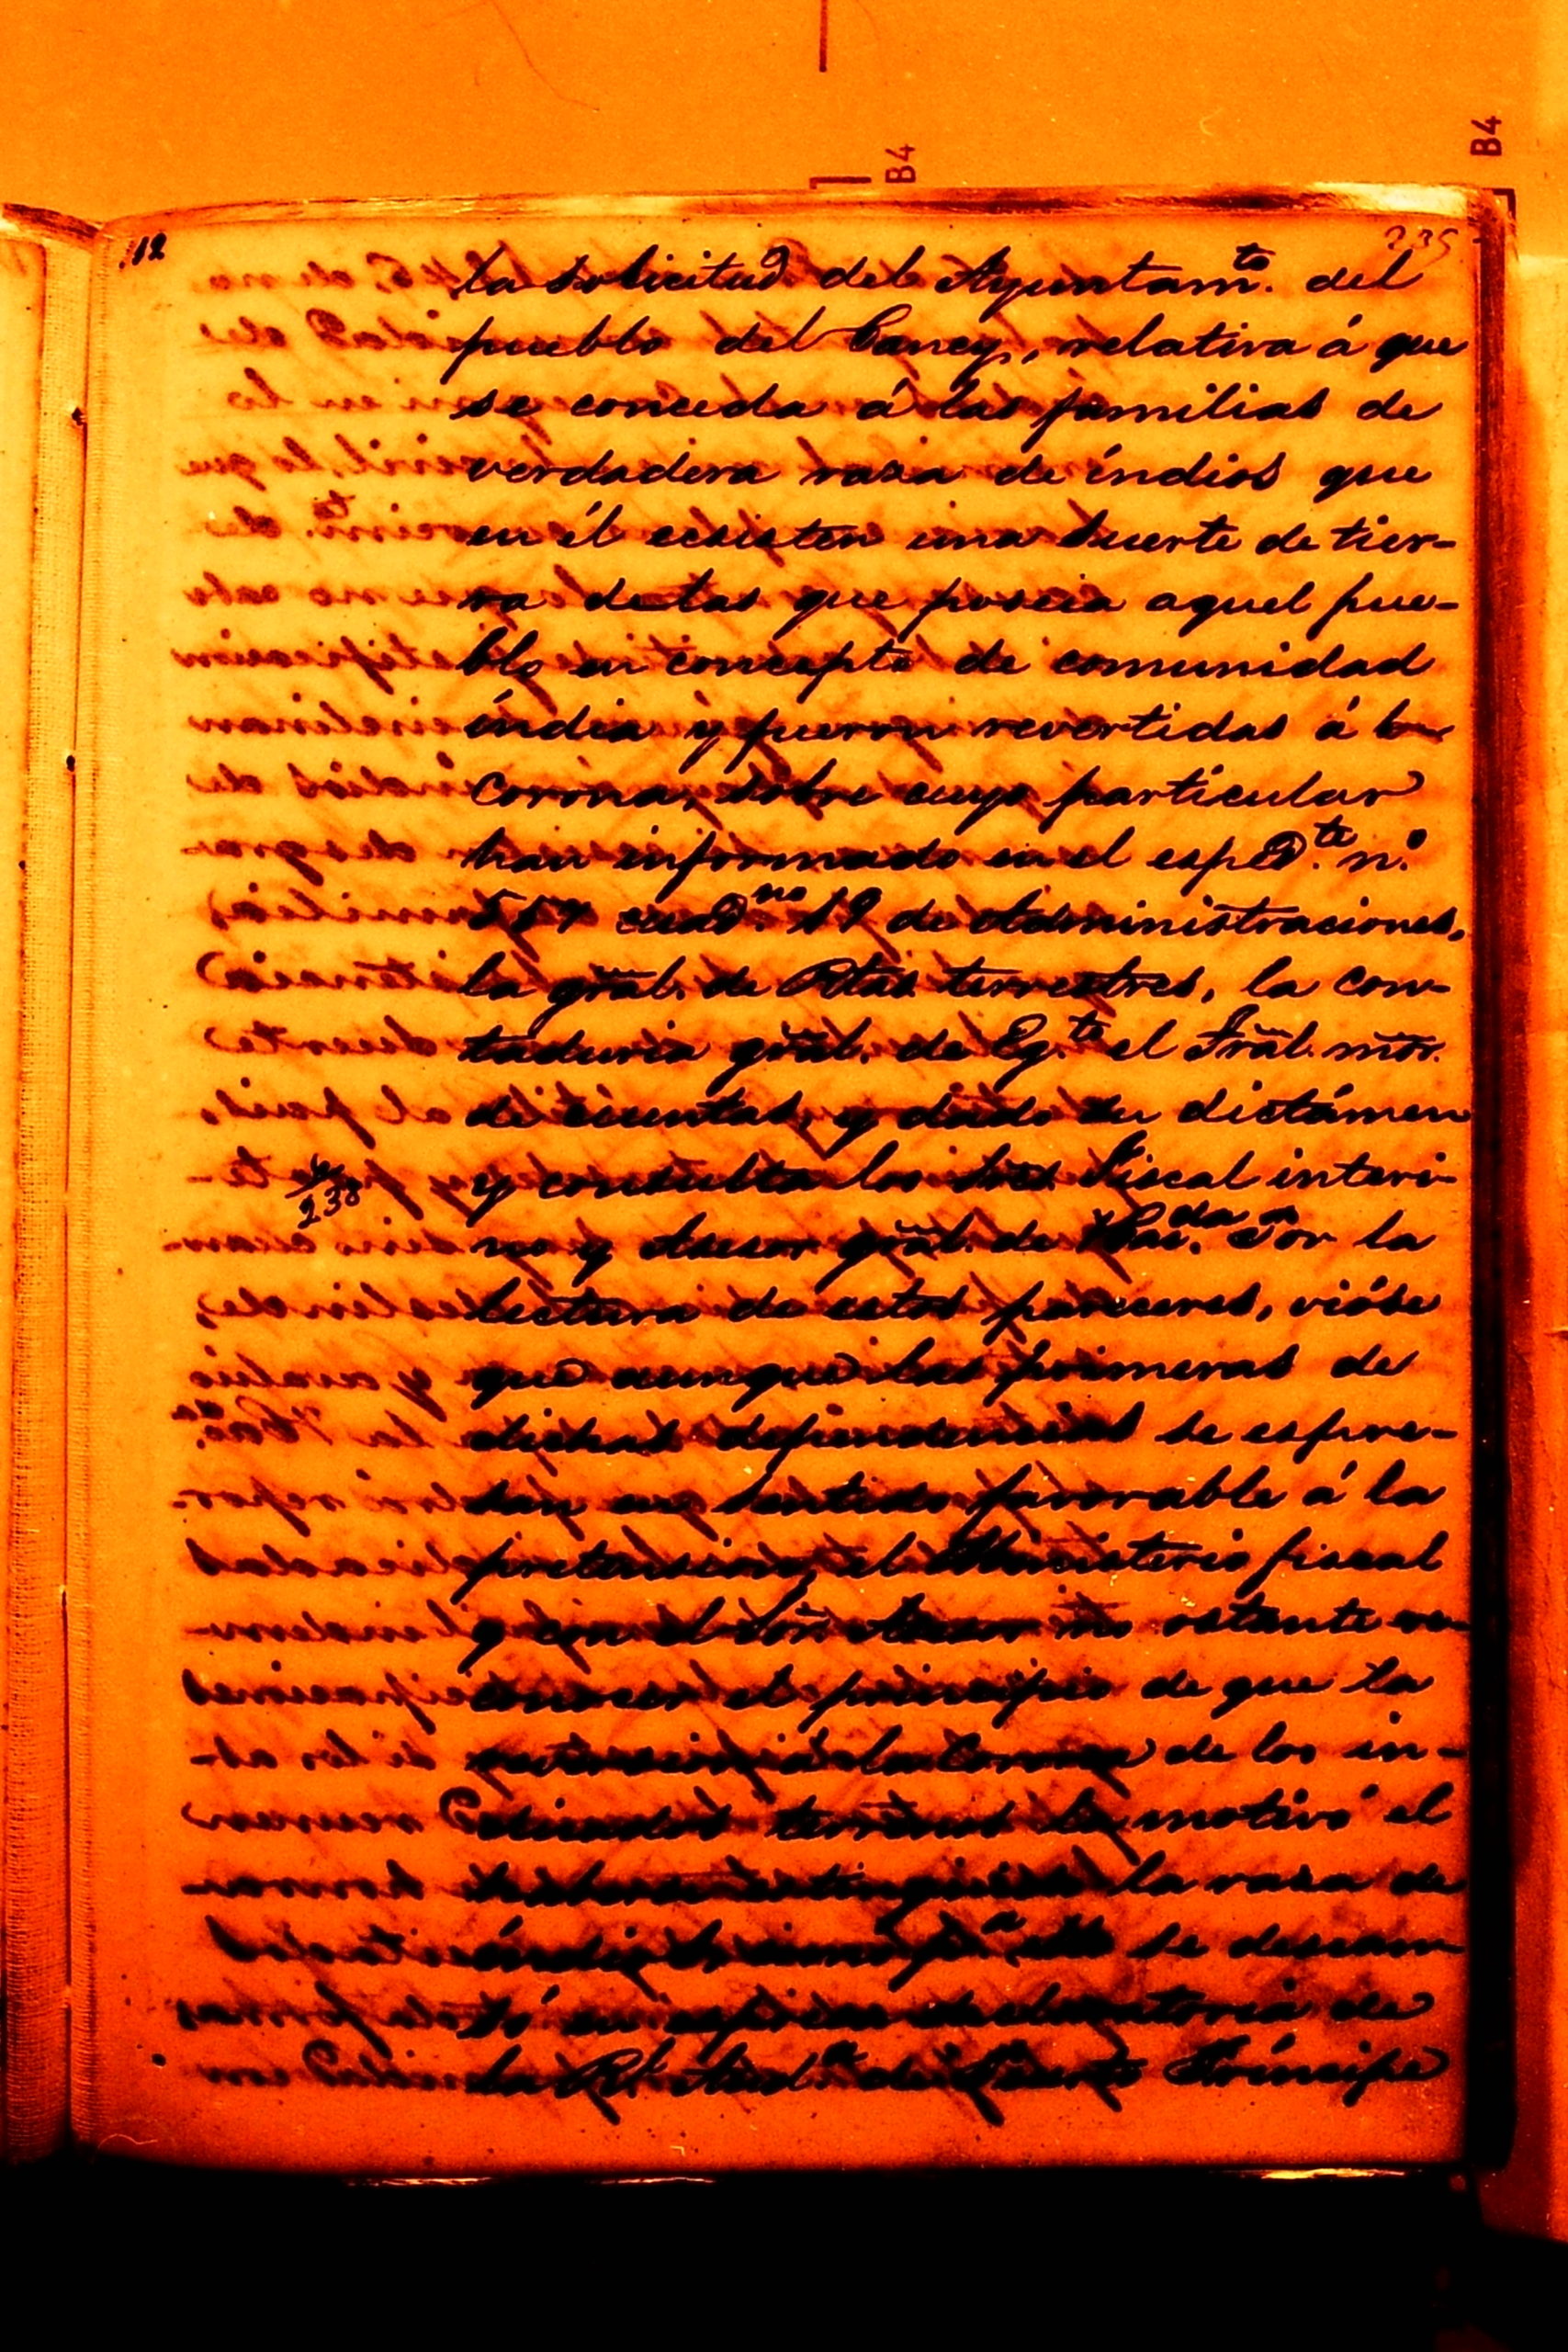 B4
B4
12
235
la solicitud del Ayuntamto. del
pueblo del Caney, relativa á que
se conceda á las familias de
verdadera rasa de indios que
en él ecsisten una suerte de tier-
ra de las que poseia aquel pue-
blo en concepto de comunidad
india y fueron revertidas á la
Corona, sobre cuyo particular
han informado en el espedte. nº
557 cuadno. 19 de Administraciones,
la gral. de Rtas. terrestres, la con-
taduria gral. de Egto. el Tral. mor.
de cuentas, y dado su dictámen
y consulta los Sres Fiscal interi-
238
no y Asesor gral. de Hacda. Por la
lectura de estos pareceres, vióse
que aunque las primeras de
dichas dependencias se espre-
san en sentido favorable á la
pretension, el Ministerio fiscal
y con el Sor. Asesor no ostante re-
conocer el principio de que la
reversion á la Corona de los in-
dicados terrenos la motivó el
haberse estinguido la rasa de
indios, y pa. ello se
tó en declaratoria de
la Rl. Auda. de Puerto Príncipe